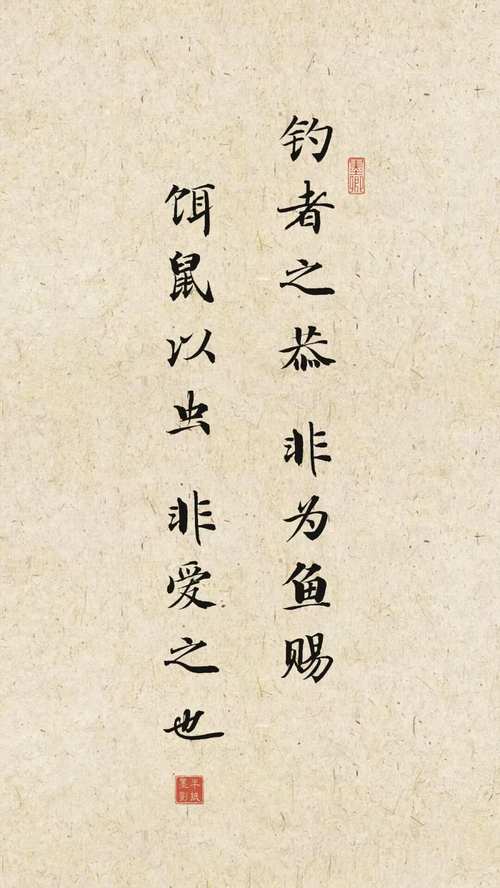 钓者之恭 非为鱼赐
饵鼠以虫 非爱之也